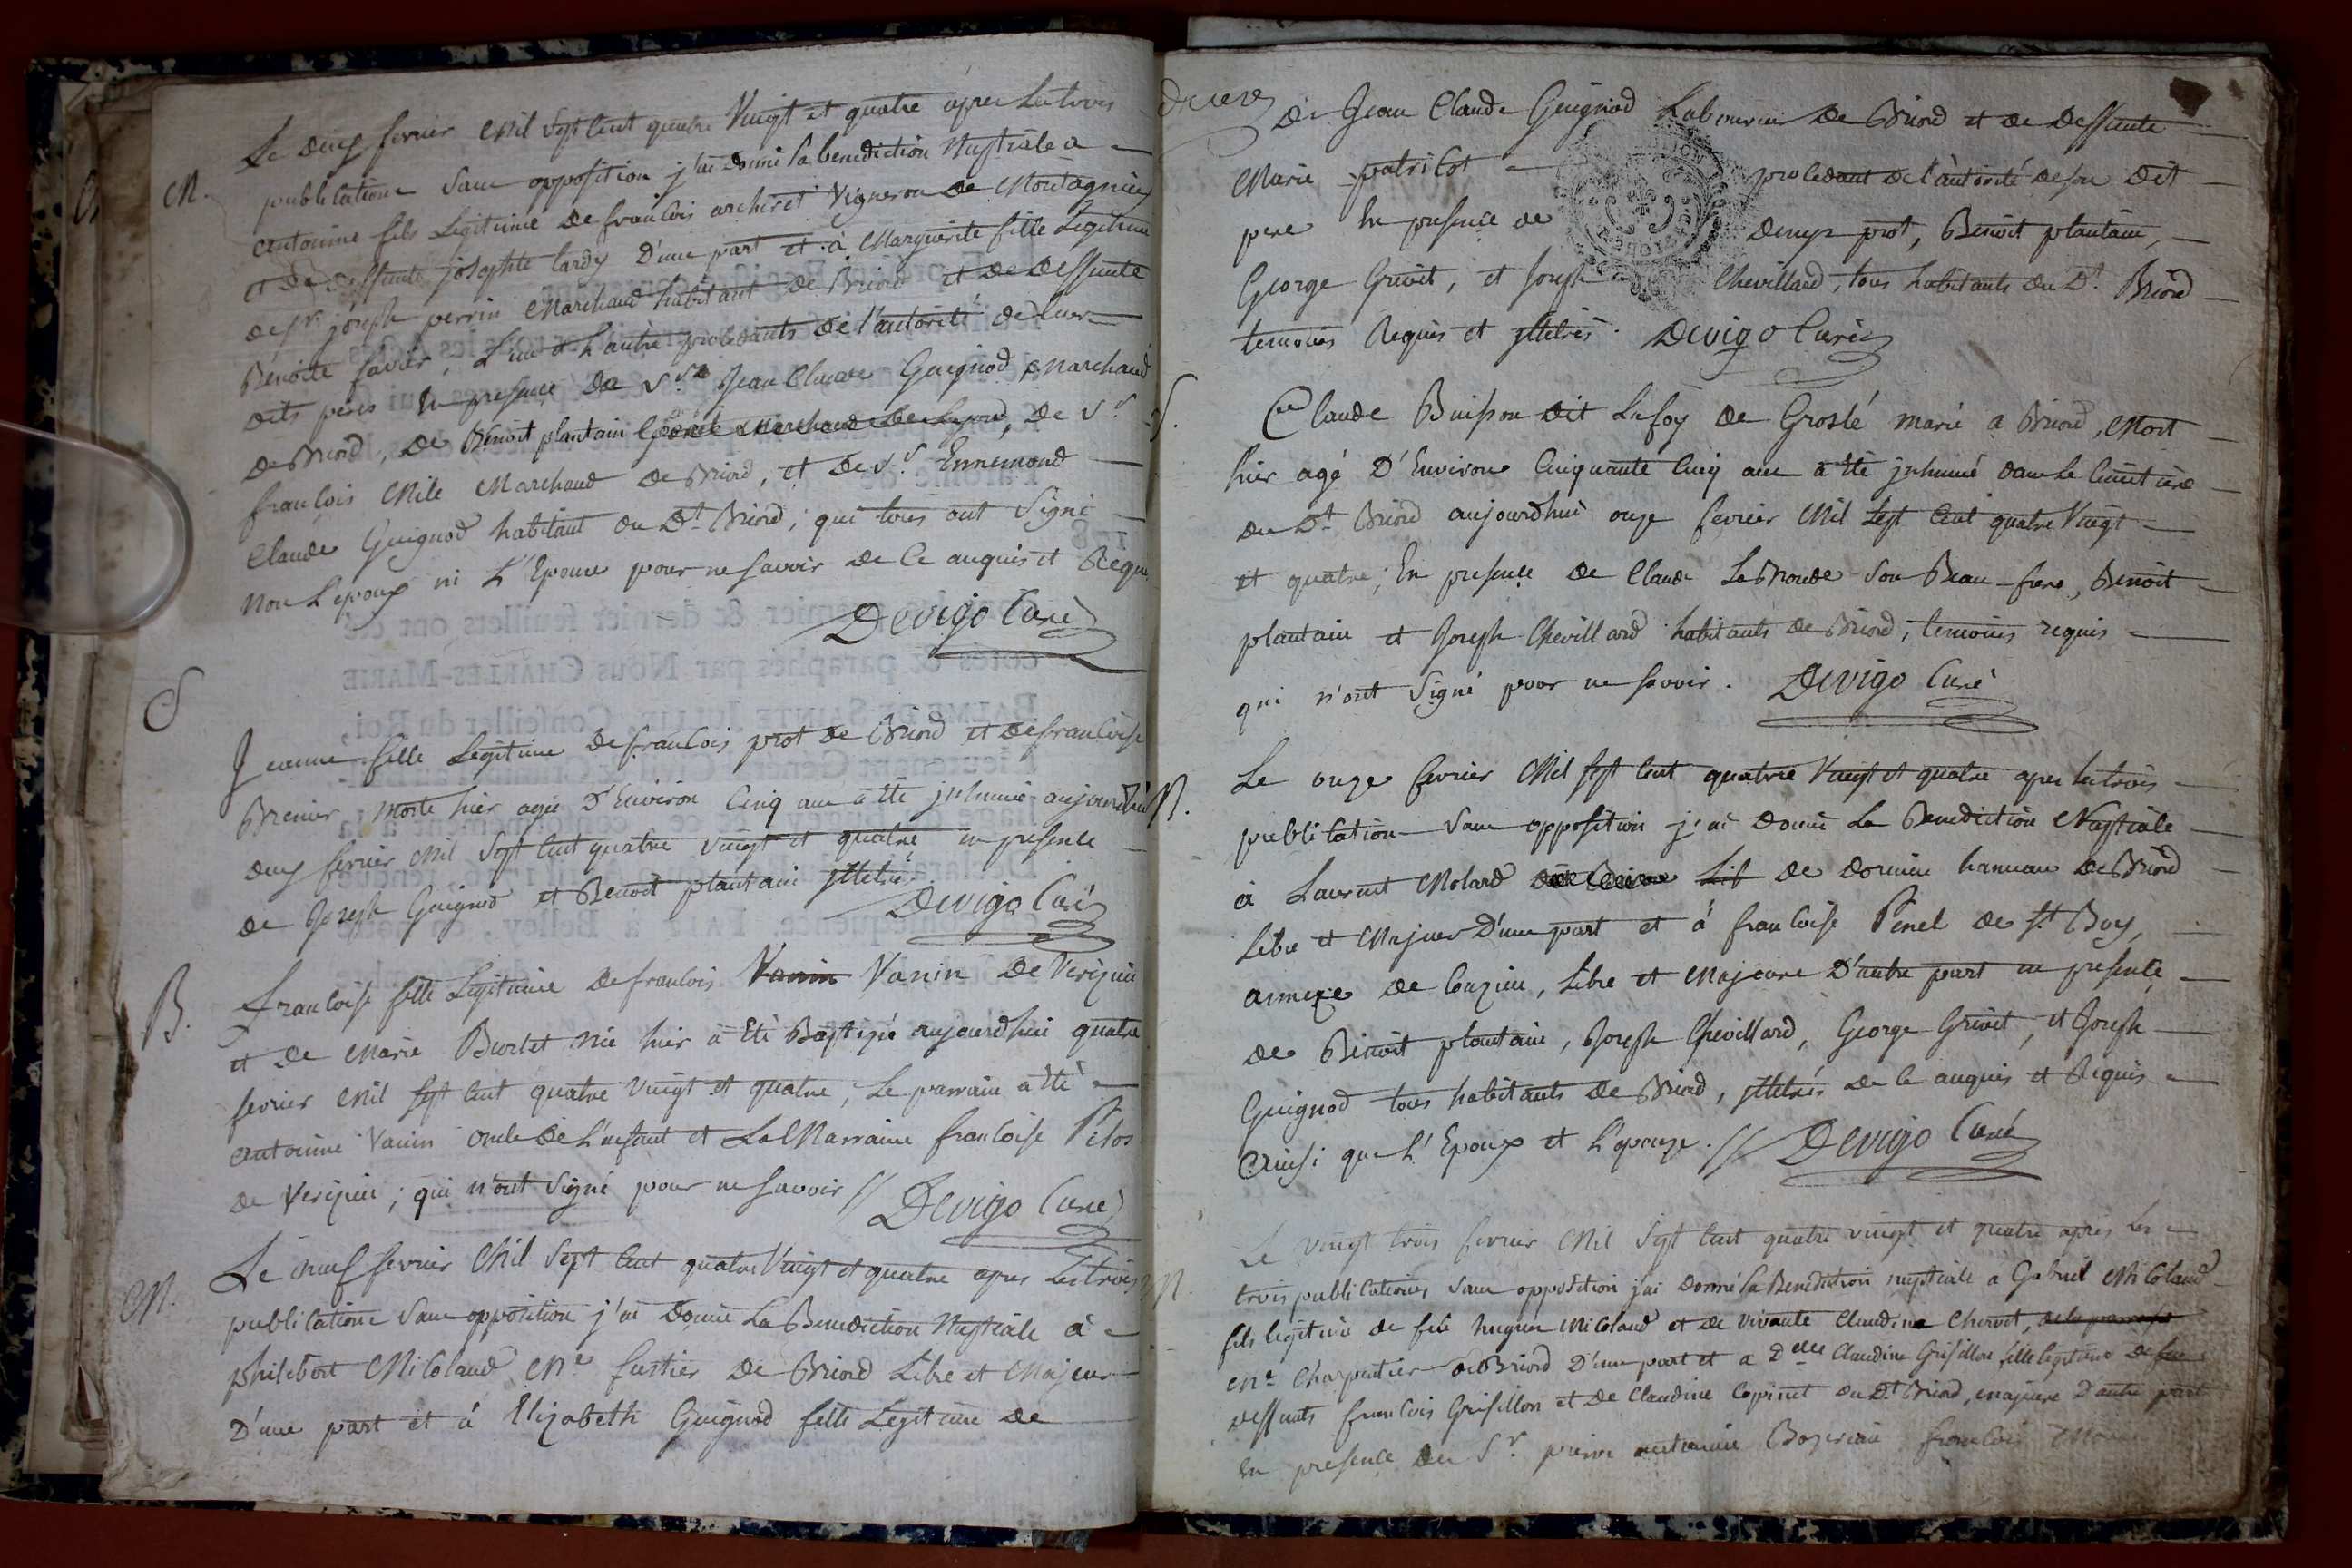 M.
Le deux fevrier Mil Sept Cent quatre Vingt et quatre après les trois
publications Sans opposition j'ai donné la benediction Nuptiale a
antoinne fils Legitime de francois archeret Vigneron de Montagnieu
et de deffunte josephte lardy D'une part et à Marguerite fille Legitime
de sr. joseph perrin Marchand habitant de Briord et de deffunte
Benoite favier, L'un et L'autre procedants de l'autorité de leur
dits peres En presence de Sr. Jean Claude Guignod Marchand
de Briord, de Benoit plantain, de Sr
francois Mile Marchand de Briord, et de Sr. Ennemond
Claude Guignod habitant du Dt Briord; qui tous ont Signé
Non L'epoux ni L'Epouse pour ne Savoir de Ce anquis et Requis
Devigo Curé
S
Jeanne fille Legitime de francois prot de Briord et de francoise
Brenier morte hier agée D'Environ Cinq ans a été jnhumée aujourdhui
deux fevrier Mil Sept Cent quatre vingt et quatre en presence
de Joseph Guignod et Benoit plantain jlletrés
Devigo Curé
B.
Francoise fille Legitime de francois Vanin Vanin de Verizieu
et de Marie Burlet née hier à Eté Baptizée aujourdhui quatre
fevrier Mil Sept Cent quatre vingt et quatre, Le parrain a été
antoinne Vanin oncle de L'enfant et La Marraine francoise Pitos
de Verizieu; qui n'ont Signé pour ne Savoir // Devigo Curé
M.
Le neuf fevrier Mil Sept Cent quatre Vingt et quatre apres Les trois
publications Sans opposition j'ai Donné La Benediction Nuptiale à
philibert Micoland Me fustier de Briord Libre et Majeur
D'une part et à Elizabeth Guignod fille Legitime de
De Jean Claude Guignod Laboureur de Briord et de Deffunte
Marie patricot procedant de l'autorité de son Dit
pere En presence de Denys prot, Benoit plantain,
George Grivet, et Joseph Chevillard, tous habitants du Dt. Briord
temoins Requis et jlletrés. Devigo Curé
S.
Claude Buisson dit Lafoy de Groslé marié a Briord, Mort
hier agé D'Environ Cinquante Cinq ans a été jnhumé dans Le Cimetiere
du Dt Briord aujourdhui onze fevrier Mil Sept Cent quatre Vingt
et quatre; En presence de Claude Labronde Son Beau-frere, Benoit
plantain et Joseph Chevillard habitants de Briord, temoins requis
qui n'ont Signé pour ne Savoir. Devigo Curé
M.
Le onze fevrier Mil Sept Cent quatre Vingt et quatre apres les trois
publications Sans opposition j'ai Donné La Benediction Nuptiale
à Laurent Molard Lib de Dornieu hameau de Briord
Libre et Majeur D'une part et à francoise Pinel de St. Boy,
annexe de Conzieu, Libre et Majeure D'autre part en presence
de Benoit plantain, Joseph Chevillard, George Grivet, et Joseph
Guignod tous habitants de Briord, jlletrés de Ce anquis et Requis
Ainsi que L'Epoux et L'epouze. // Devigo Curé
M.
Le vingt trois fevrier Mil Sept Cent quatre vingt et quatre après Les
trois publications Sans opposition j'ai Donné la Benediction nuptiale a Gabriel Micoland
fils legitime de feu hugues Micoland et de vivante Claudine Chervet, de la paroisse
Me Charpentier de Briord D'une part et a Delle Claudine Grisillon fille legitime de feu
deffunts francois Grisillon et de Claudine Copinet du Dt Briord, majeure D'autre part
En presence de Sr. pierre antoinne francois